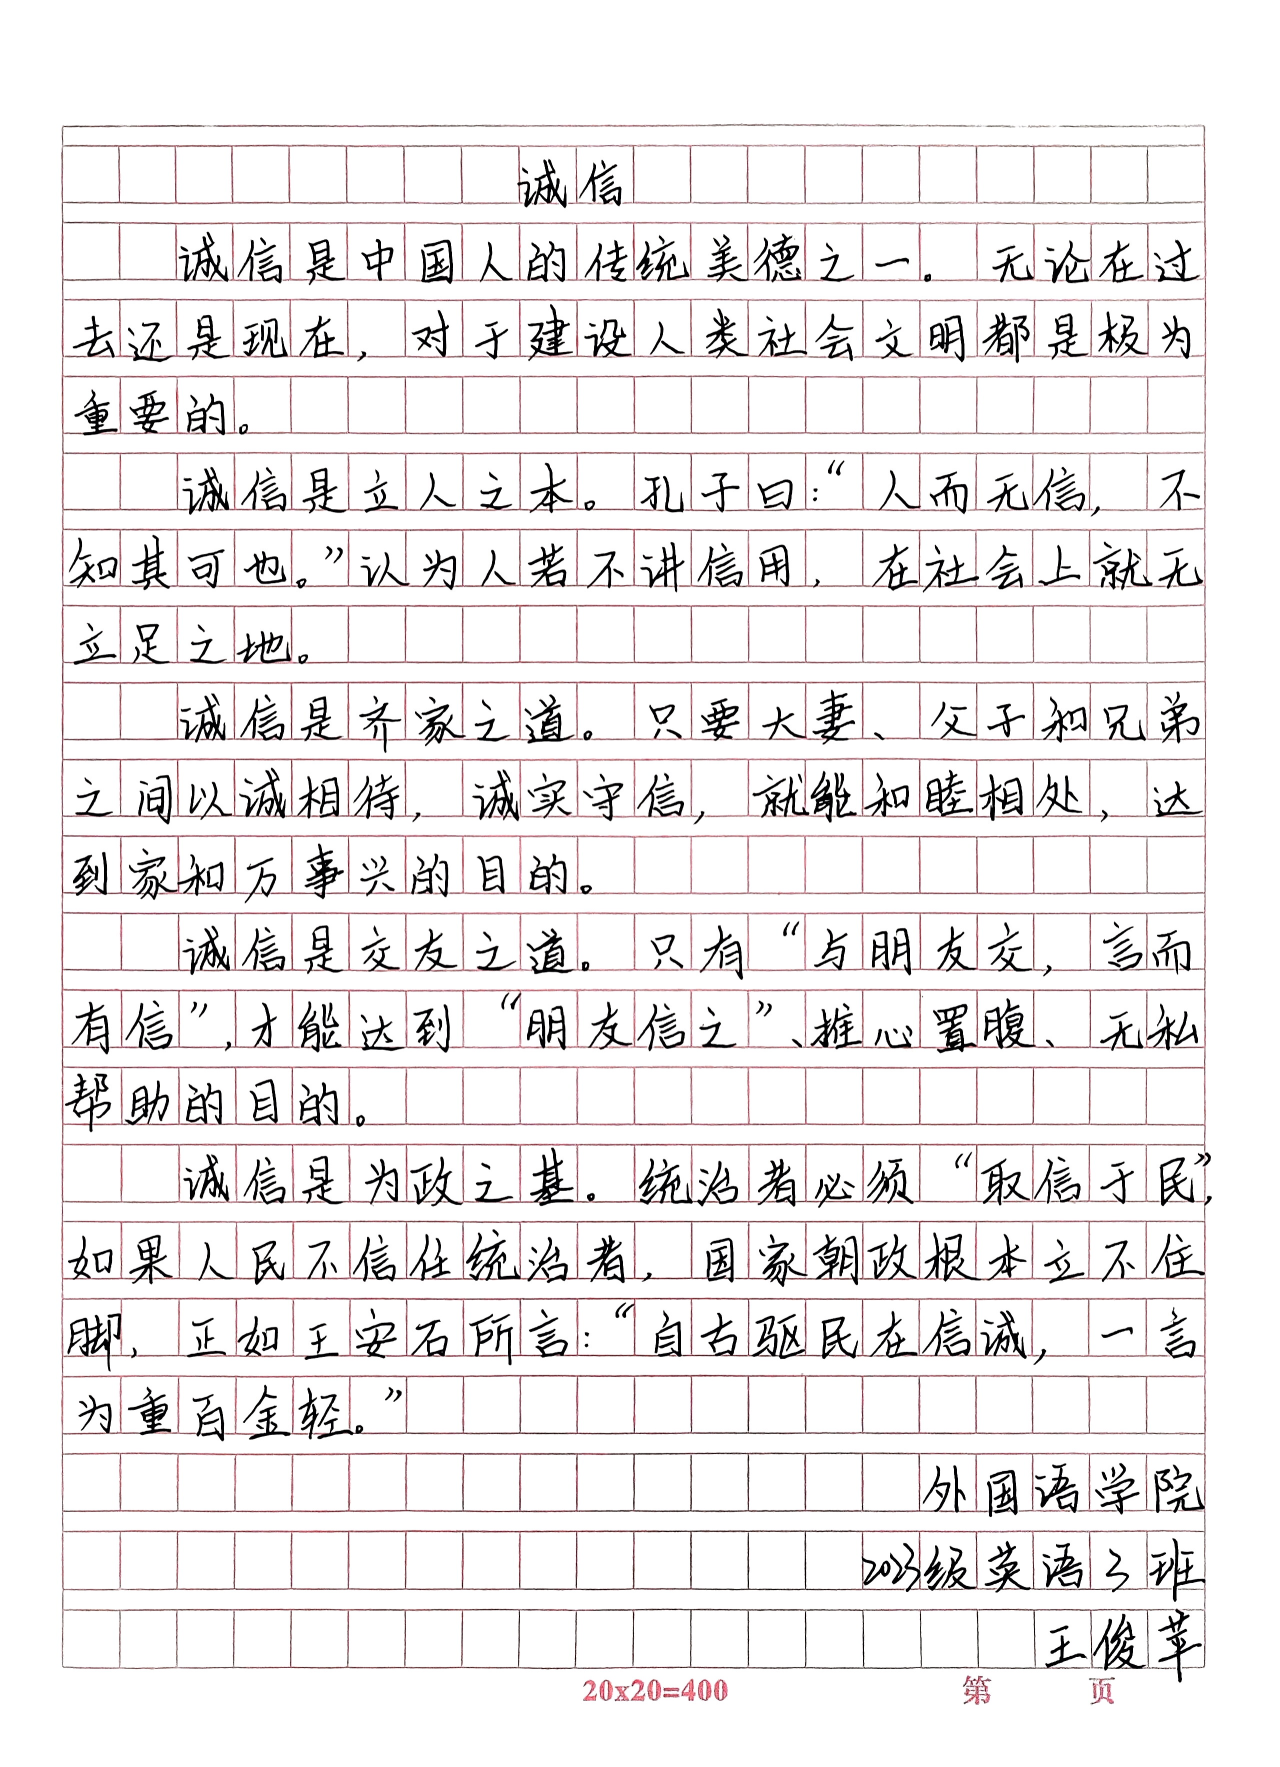 诚信
诚信是中国人的传统美德之一。无论在过
去还是现在，对于建设人类社会文明都是极为
重要的。
诚信是立人之本。孔子曰：“人而无信，不
知其可也。”认为人若不讲信用，在社会上就无
立足之地。
诚信是齐家之道。只要大妻、父子和兄弟
之间以诚相待，诚实守信，就能和睦相处，达
到家和万事兴的目的。
诚信是交友之道。只有“与朋友交，言而
有信”，才能达到“朋友信之”、推心置腹、无私
帮助的目的。
诚信是为政之基。统治者必须“取信于民”，
如果人民不信任统治者，国家朝政根本立不住
脚，正如王安石所言：“自古驱民在信诚，一言
为重百金轻。”
外国语学院
2023级英语3班
王俊苹
20x20=400 第 页